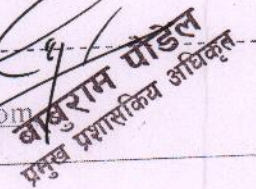 om
बाबुराम पौडेल
प्रमुख प्रशासकिय अधिकृत